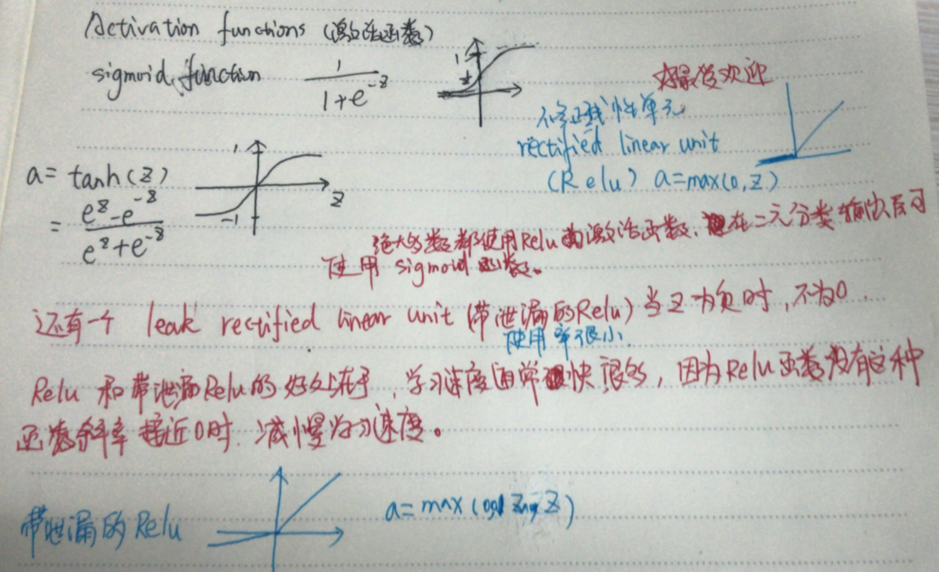 Activation functions (激活函数)
sigmoid function 1/(1+e^-z)
1
好最受欢迎
修正线性单元
rectified linear unit
(Relu) a=max(0,z)
a= tanh(z)
= (e^z-e^-z)/(e^z+e^-z)
1
-1
z
绝大多数都使用Relu的激活函数,在二元分类输出层可
使用 sigmoid 函数。
还有一个 leak rectified linear unit (带泄漏的Relu)当z为负时,不为0.
使用率很小.
Relu 和带泄漏Relu的好处在于,学习速度通常快很多,因为Relu函数没有这种
函数斜率接近0时,减慢学习速度。
带泄漏的Relu
a=max(